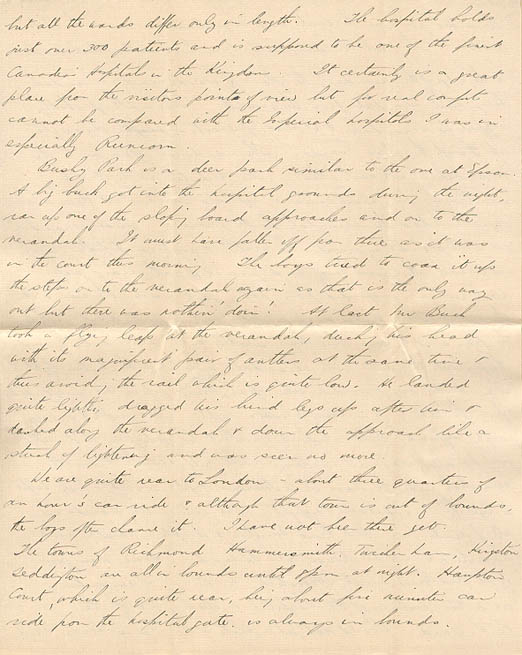 but all the wards differ only in length. The hospital holds
just over 300 patients and is supposed to be one of the finest
Canadian Hospitals in the Kingdom. It certainly is a great
place from the visitors point of view but for real comfort
cannot be compared with the Imperial hospitals I was in
especially Runcorn.
Bushy Park is a deer park similar to the one at Epsom.
A big buck got into the hospital grounds during the night,
ran up one of the sloping board approaches and on to the
verandah. It must have fallen off from there as it was
in the court this morning. The boys tried to coax it up
the steps on to the verandah again as that is the only way
out but there was nothin' doin'. At last Mr Buck
took a flying leap at the verandah, ducking his head
with its magnificent pair of antlers at the same time &
thus avoiding the rail which is quite low. He landed
quite lightly, dragged his hind legs up after him &
dashed along the verandah & down the approach like a
streak of lightening and was seen no more.
We are quite near to London - about three quarters of
an hour's car ride & although that town is out of bounds,
the boys often chance it. I have not been there yet.
The towns of Richmond Hammersmith, Twickenham, Kingston
Teddington are all in bounds until 9pm at night. Hampton
Court, which is quite near, being about five minutes car
ride from the hospital gate, is always in bounds.